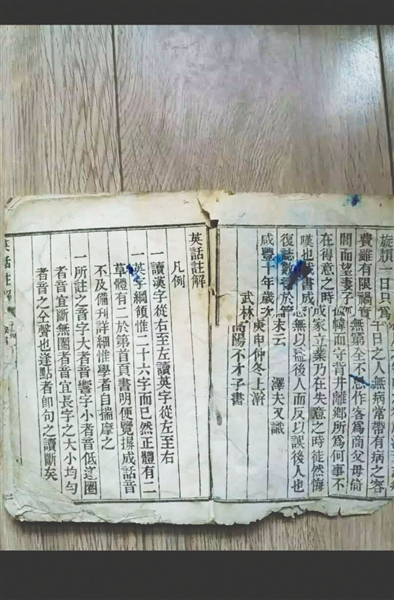 旋頭一日只爲千日之人無病常帶有病之容
費雖有限禍實無窮第全不作客爲商父母倚
閭而望妻子幃而守背井離鄉所爲何事不
在得意之時成家立業乃在失意之時徒然悔
嘆也哉書成無以益後人而反以誤後人也
復誌數於篇末云 澤夫又識
咸豐十年歲次庚申仲冬上澣
武林高陽不才子書
英話註解
凡例
一讀漢字從右至左讀英字從左至右
一英字綱領惟二十六字而已然正體有二
草體有二於第首頁書明便覽揖成話音
不及備刊詳細惟學者自揣摩之
一所註之音字大者音響字小者音低逐圈
者音宜斷無圈者音宜長字之大小均勻
者音之全聲也逢點者即句之讀斷矣
英話註解